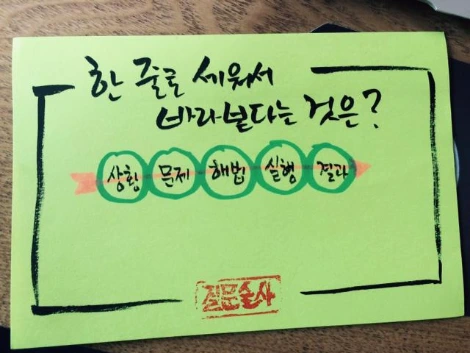 한 줄로 세워서
바라본다는 것은?
상황 문제 해법 실행 결과
질문술사